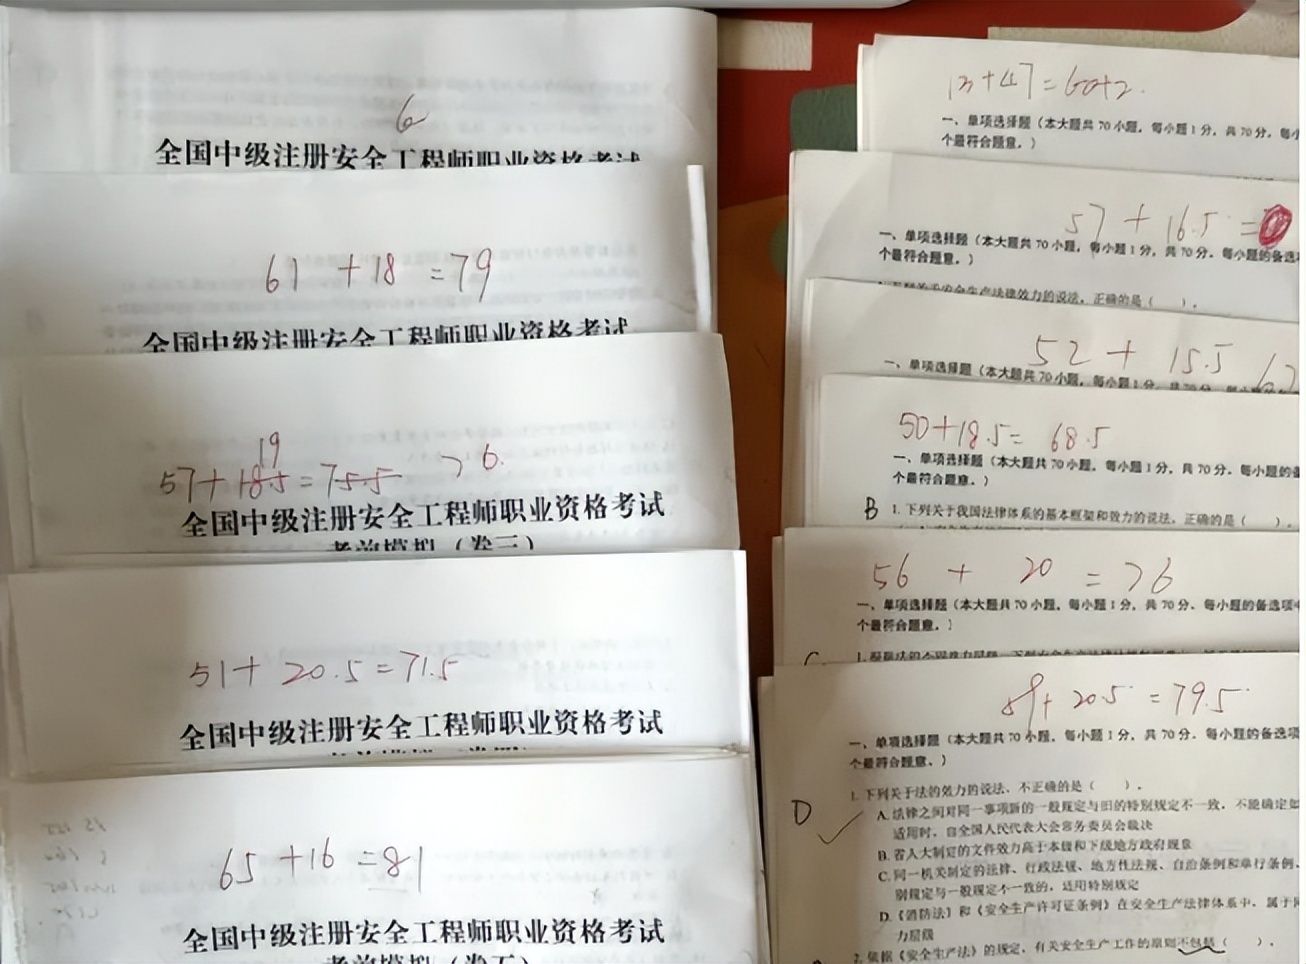 6
全国中级注册安全工程师职业资格考试
61 +18 =79
全国中级注册安全工程师职业资格考试
19
57+18.5=75.5 76.
全国中级注册安全工程师职业资格考试
考前模拟（卷三）
51+ 20.5=71.5
全国中级注册安全工程师职业资格考试
65 +16 =81
全国中级注册安全工程师职业资格考试
考前模拟（卷五）
13+47=60+2.
一、单项选择题（本大题共 70 小题，每小题 1 分，共 70 分，每小
个最符合题意。）
57 + 16.5 =
一、单项选择题（本大题共 70 小题，每小题 1 分，共 70 分。每小题的备选
个最符合题意。）
安全生产法律效力的说法，正确的是（ ）。
52 + 15.5 67
一、单项选择题（本大题共 70 小题，每小题 1 分，共 70 分，每小题
50+18.5= 68.5
一、单项选择题（本大题共 70 小题，每小题 1 分，共 70 分。每小题的备
个最符合题意。）
B 1. 下列关于我国法律体系的基本框架和效力的说法，正确的是（ ）。
56 + 20 = 76
一、单项选择题（本大题共 70 小题，每小题 1 分，共 70 分。每小题的备选项中
个最符合题意。）
59+ 20.5 =79.5
一、单项选择题（本大题共 70 小题，每小题 1 分，共 70 分。每小题的备选项
个最符合题意。）
D 1. 下列关于法的效力的说法，不正确的是（ ）。
A. 法律之间对同一事项新的一般规定与旧的特别规定不一致，不能确定如
适用时，由全国人民代表大会常务委员会裁决
B. 省人大制定的文件效力高于本级和下级地方政府规章
C. 同一机关制定的法律、行政法规、地方性法规、自治条例和单行条例、
别规定与一般规定不一致的，适用特别规定
D.《消防法》和《安全生产许可证条例》在安全生产法律体系中，属于同
力层级
2. 依据《安全生产法》的规定，有关安全生产工作的原则不包括（ ）。